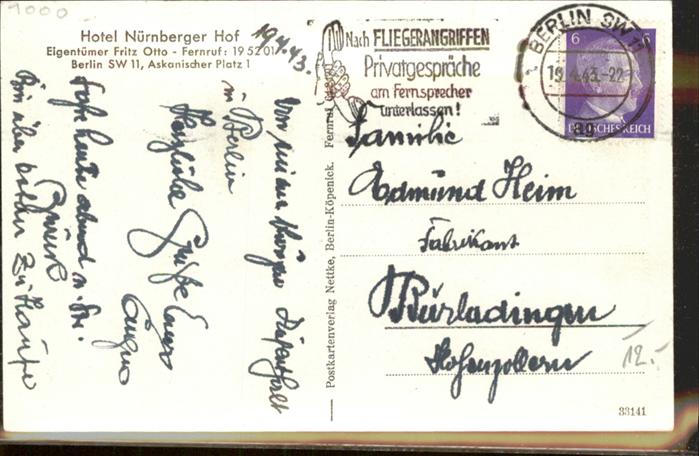 1000
Hotel Nürnberger Hof
Eigentümer Fritz Otto - Fernruf: 19 52 01
Berlin SW 11, Askanischer Platz 1
19.4.43.
Von meinem kurzen Aufenthalt
in Berlin
Herzliche Grüße Euer
Fahre heute abend n.
Bin über zu Hause
Postkartenverlag Nettke, Berlin-Köpenick. Fernruf
Nach FLIEGERANGRIFFEN
Privatgespräche
am Fernsprecher
unterlassen!
BERLIN SW 11
19.4.43.-22
ag
6 6
DEUTSCHES REICH
Familie
Edmund Heim
Fabrikant
Burladingen
Hohenzollern
12.-
33141